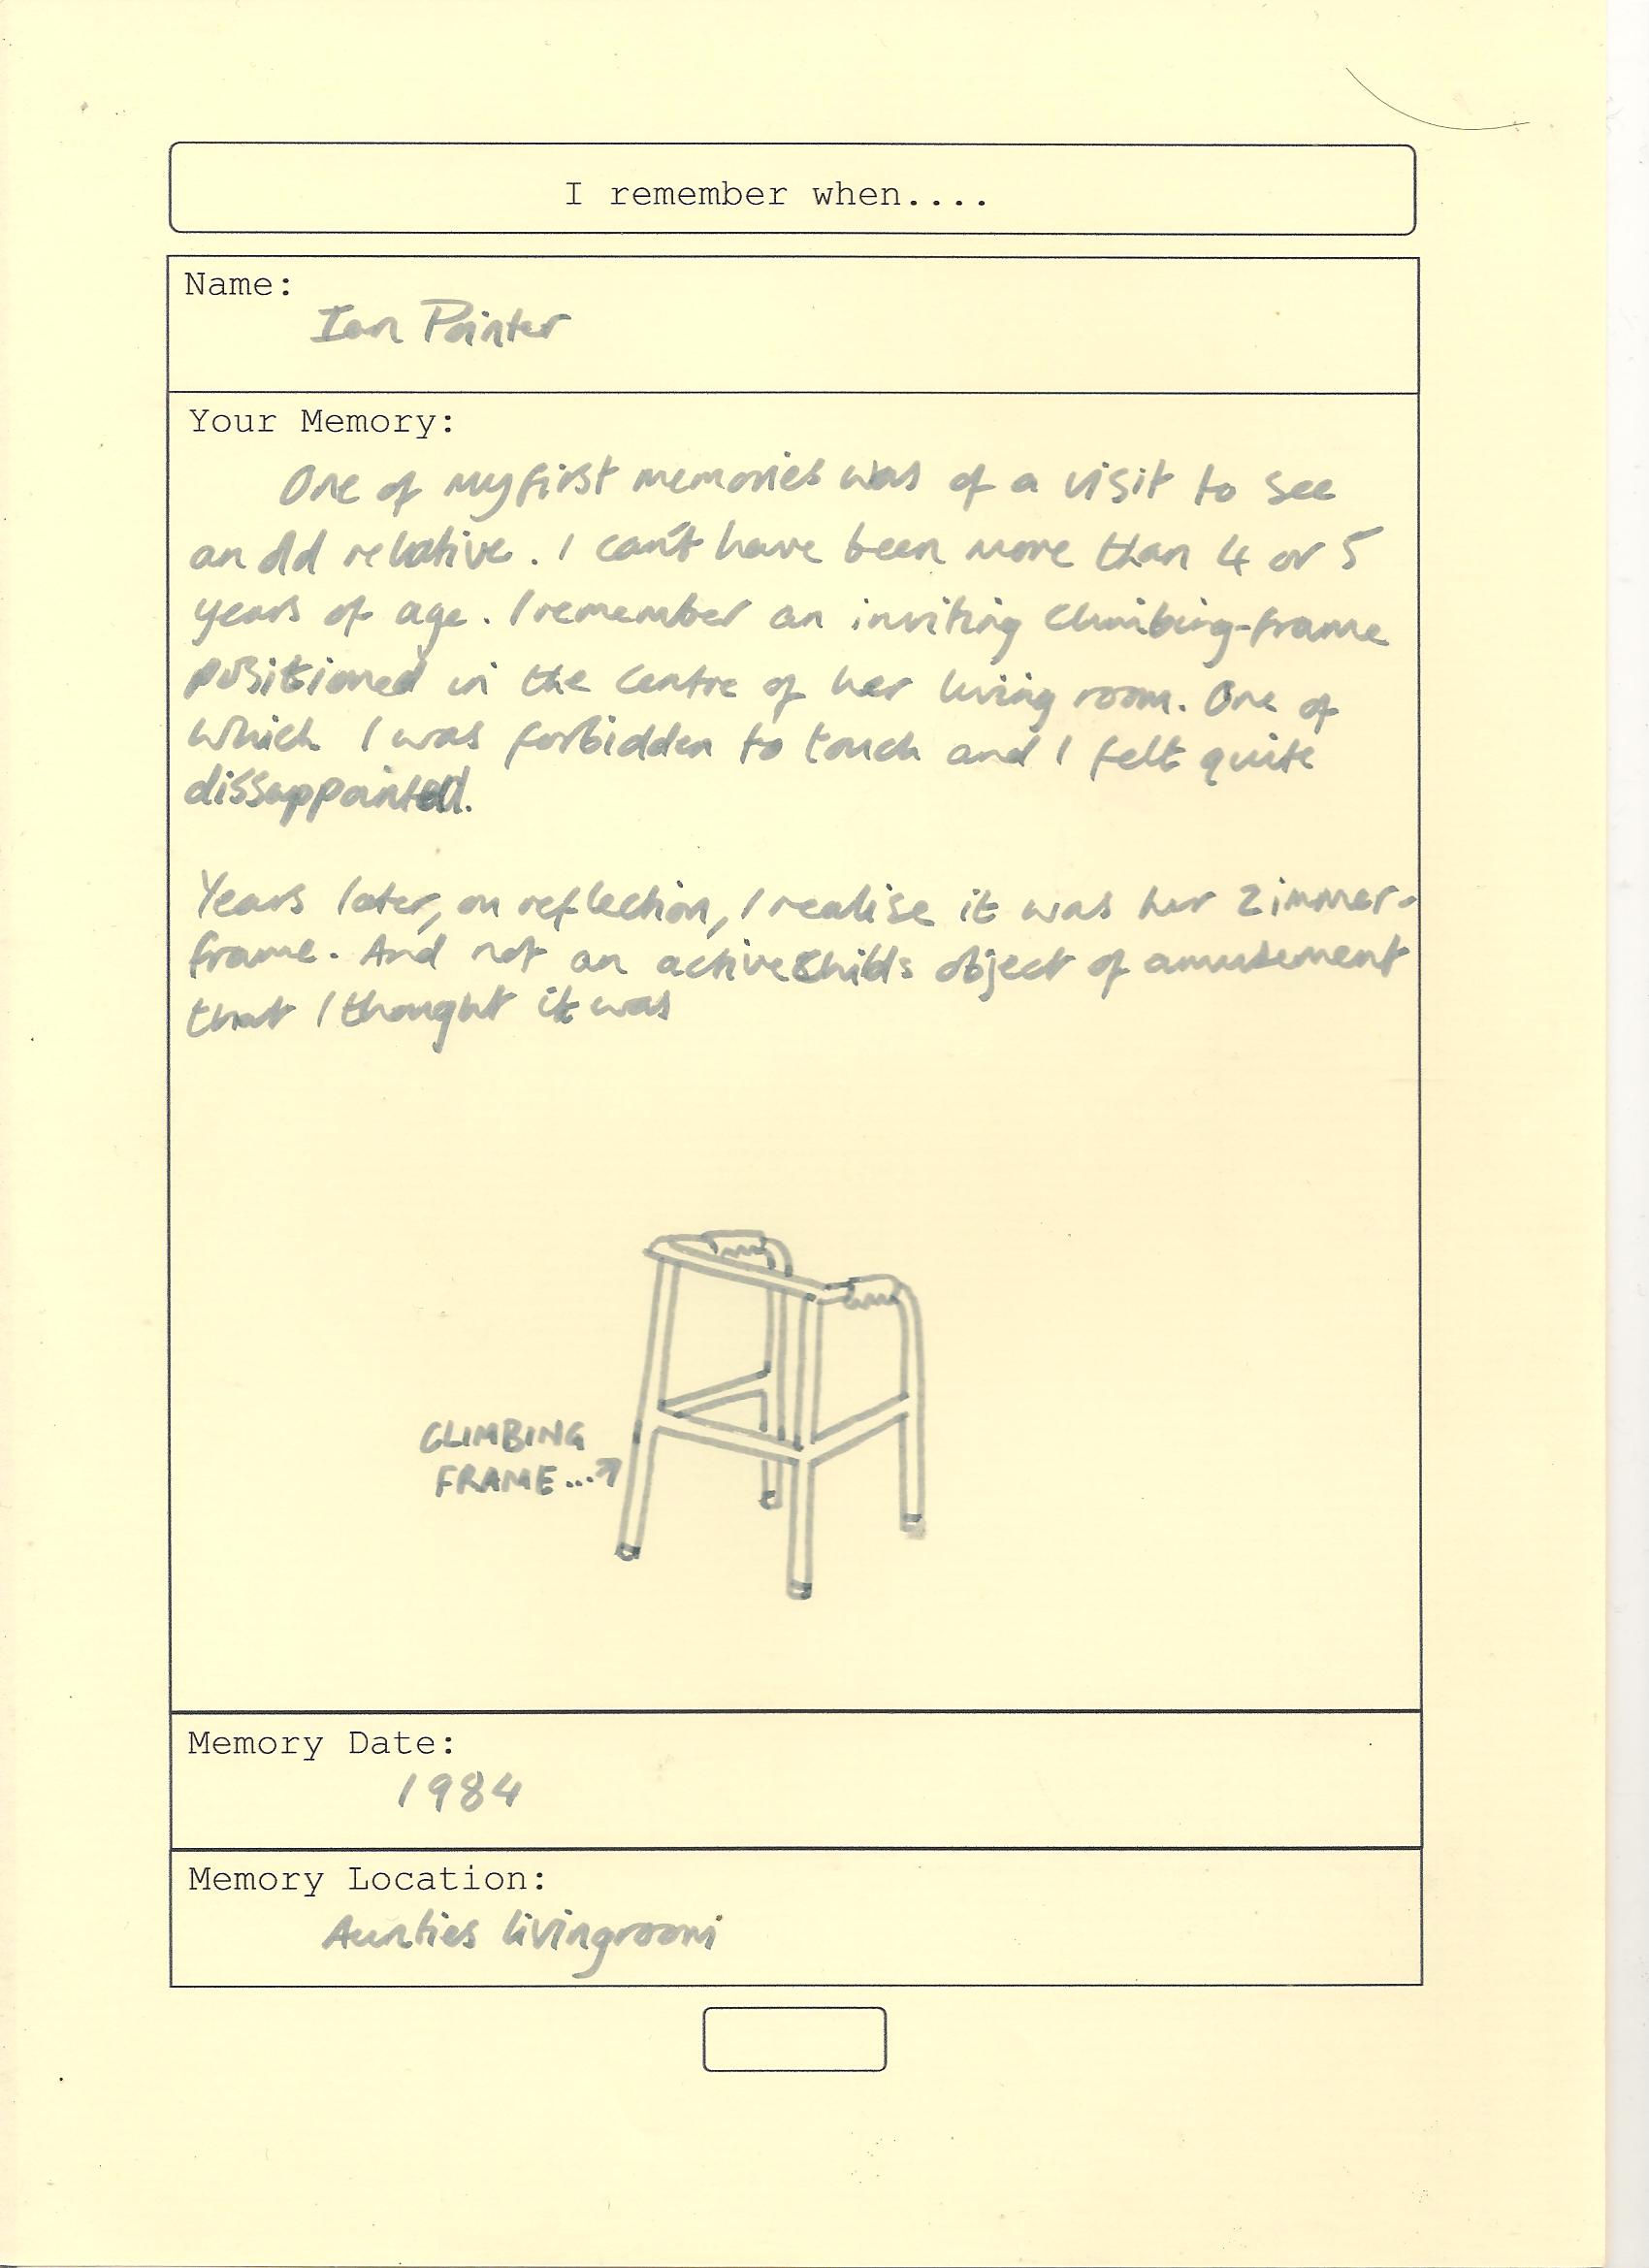 I remember when....
Name:
Ian Pointer
Your Memory:
One of my first memories was of a visit to see
an old relative. I can't have been more than 4 or 5
years of age. I remember an inviting climbing-frame
positioned in the centre of her living room. One of
which I was forbidden to touch and I felt quite
dissappointed.
Years later, on reflection, I realise it was her zimmer-
frame. And not an active childs object of amusement
that I thought it was
CLIMBING
FRAME...
Memory Date:
1984
Memory Location:
Aunties livingroom